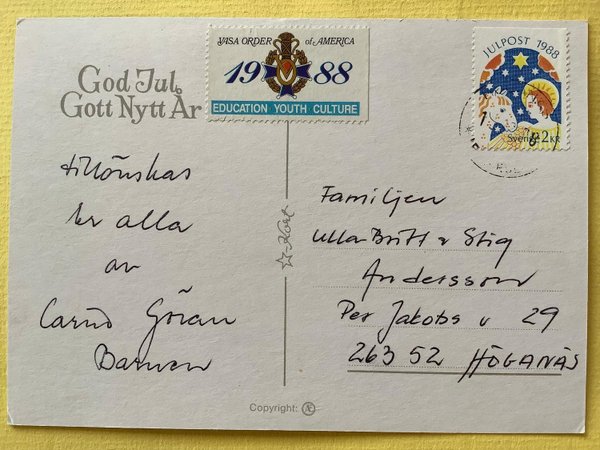 VASA ORDER of AMERICA
1988
EDUCATION YOUTH CULTURE
JULPOST 1988
Sverige 2 KR
God Jul
Gott Nytt År
tillönskas
er alla
av
Göran
Familjen
Ulla-Britt & Stig
Andersson
Per Jakobs v 29
263 52 HÖGANÄS
Kort
Copyright: